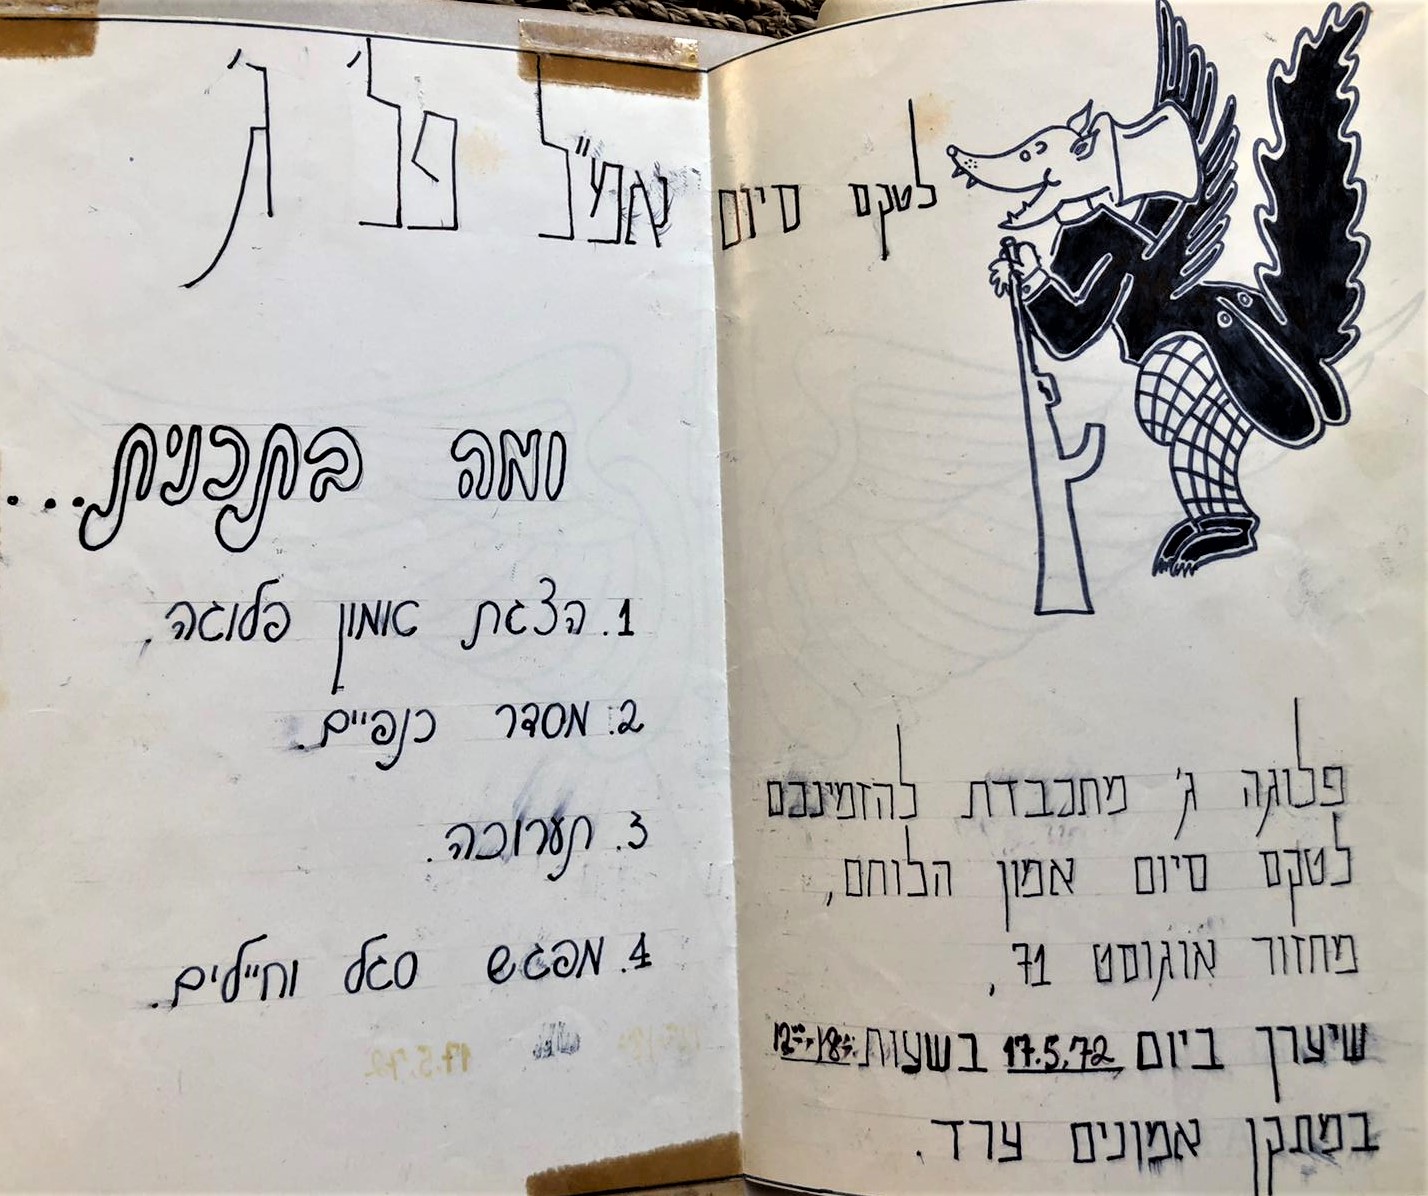 לטקס סיום אמ"ל פל' ג'
פלוגה ג' מתכבדת להזמינכם
לטקס סיום אמון הלוחם,
מחזור אוגוסט 71,
שיערך ביום 17.5.72 בשעות 12⁰⁰-18⁰⁰
במתקן אמונים ערד.
ומה בתכנית...
1. הצגת אמון פלוגה.
2. מסדר כנפיים.
3. תערוכה.
4. מפגש סגל וחיילים.